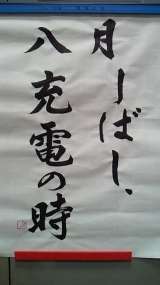 八月
しばし、
充電の時